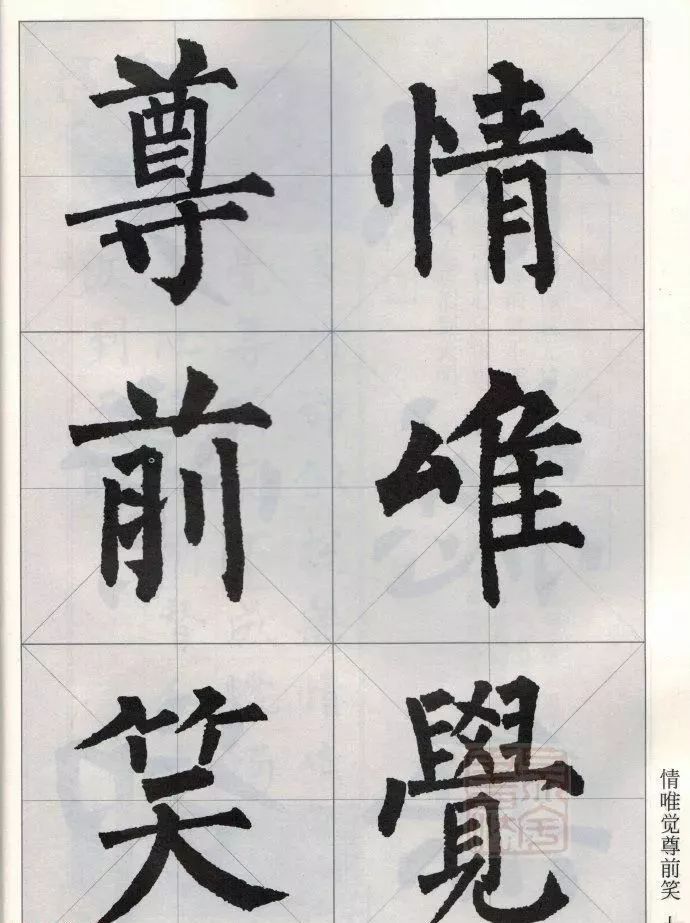 情唯覺
尊前笑
情唯觉尊前笑